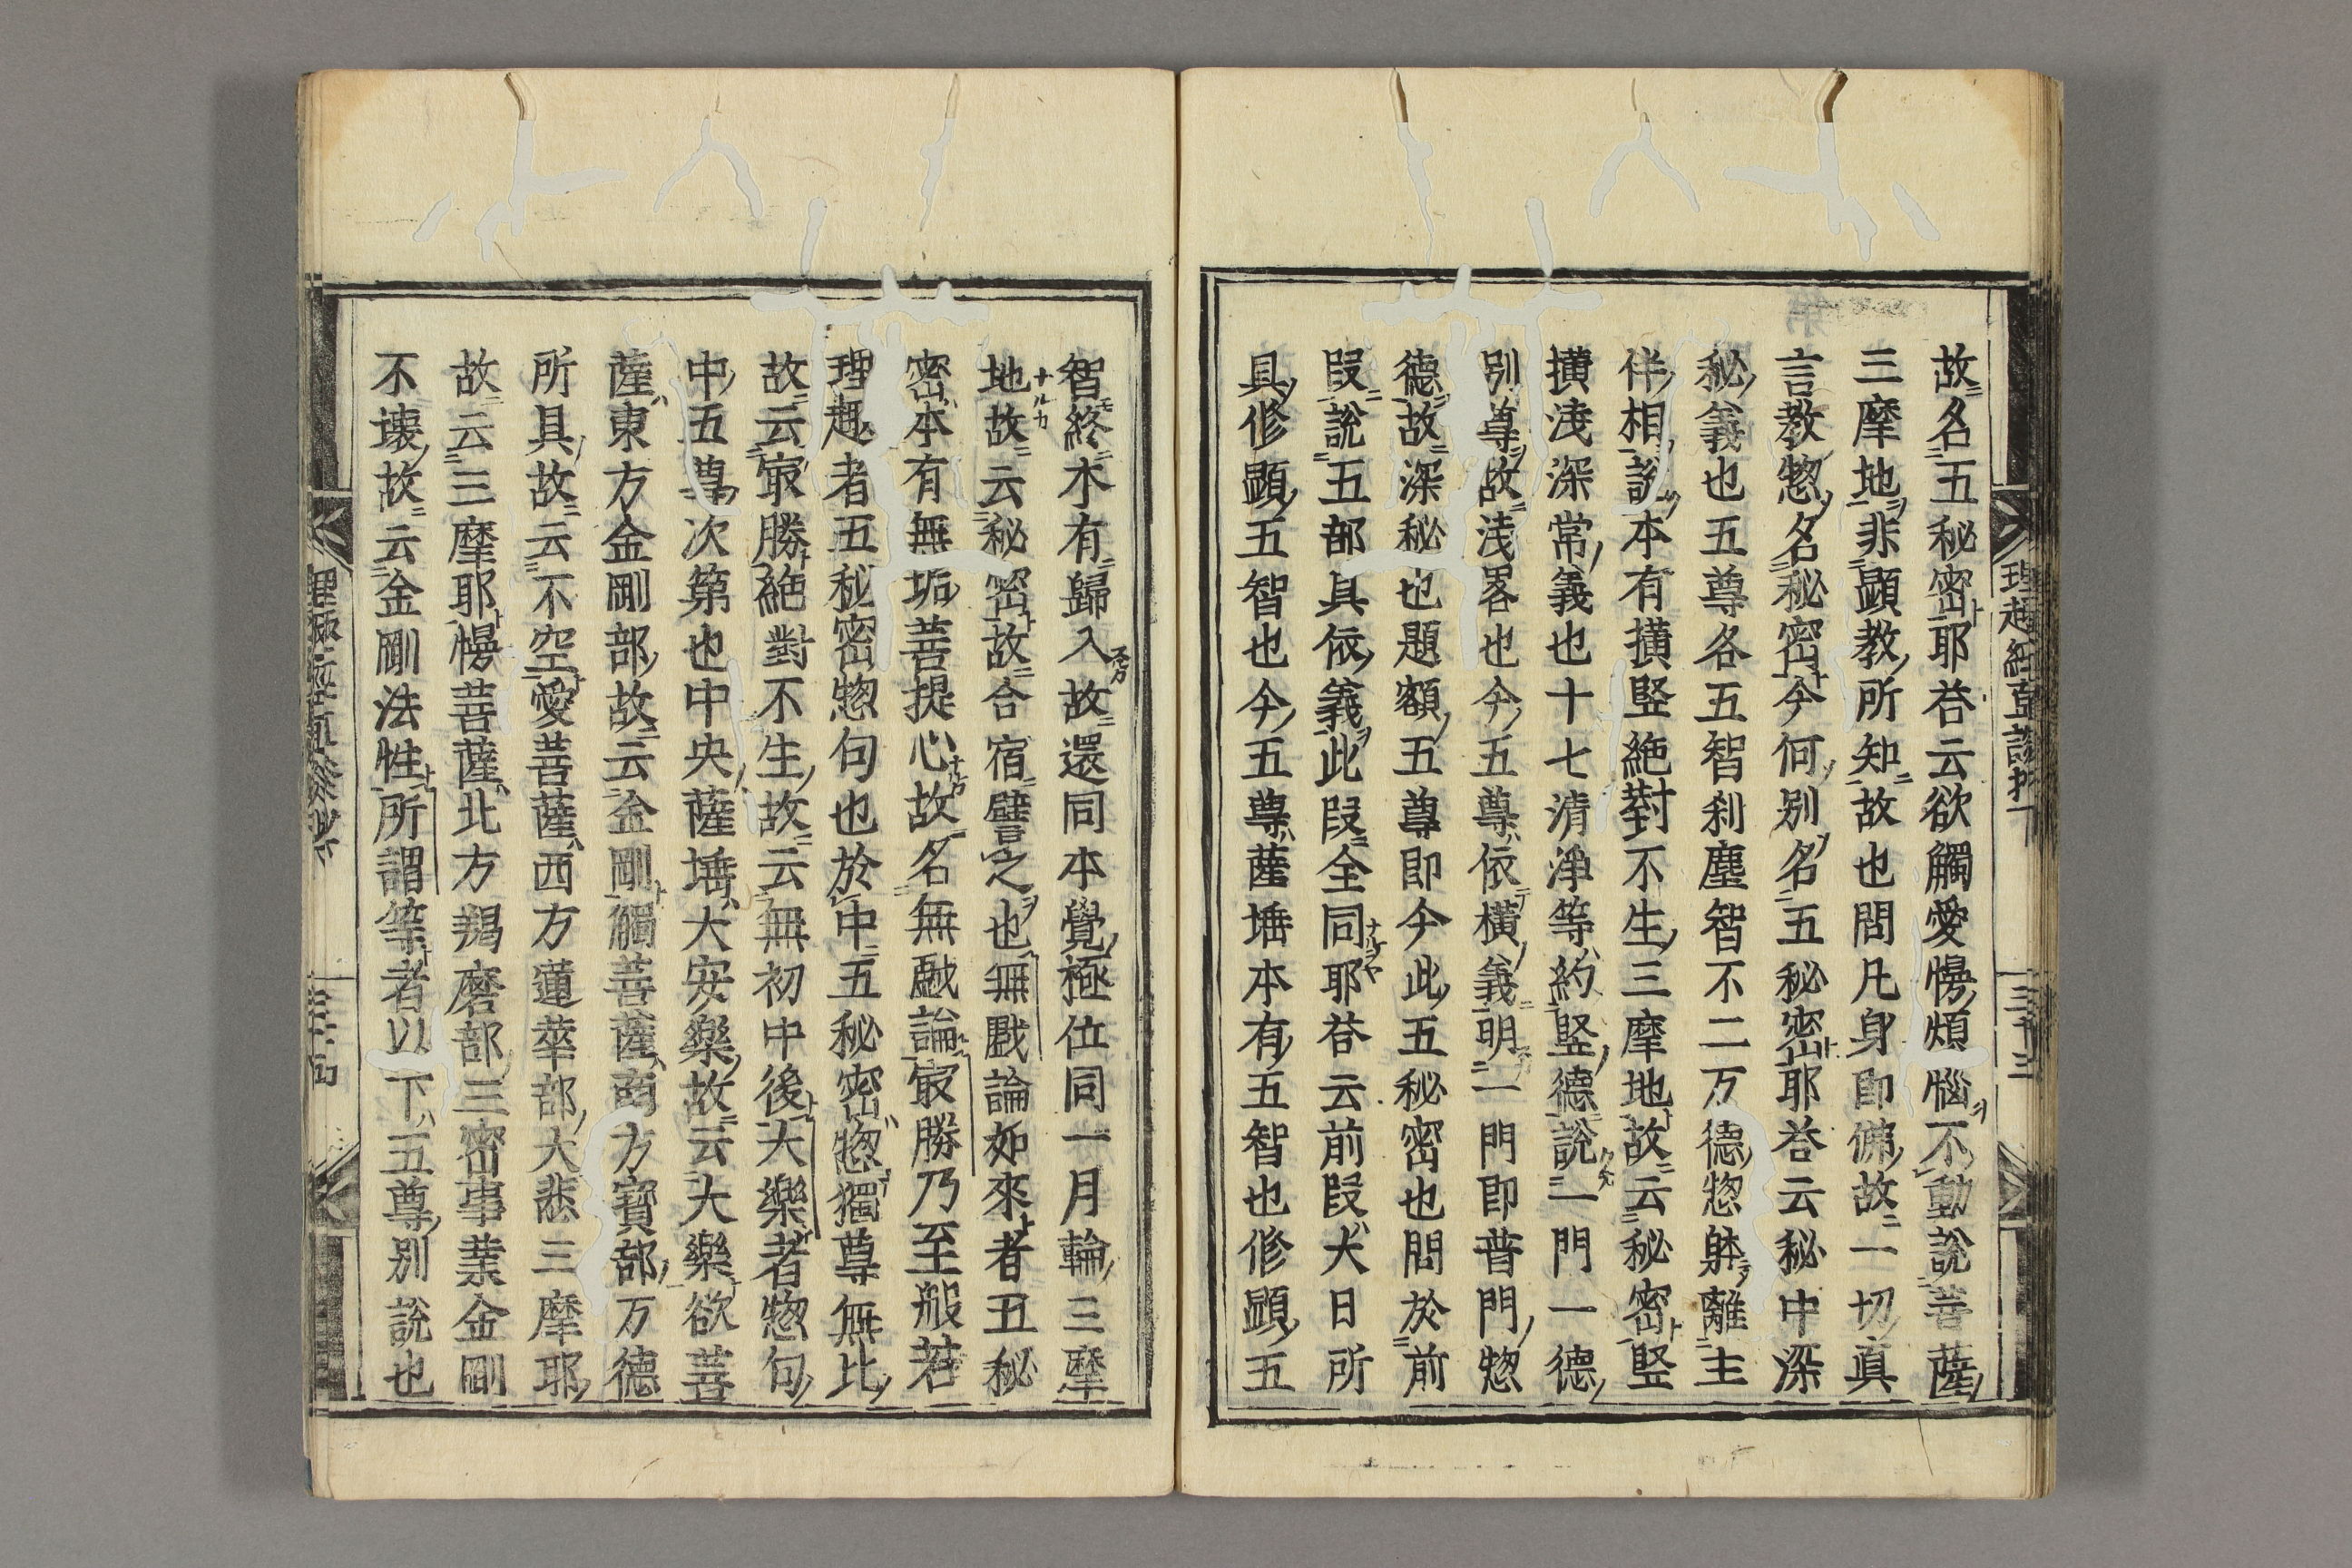 故名五秘密耶荅云欲觸愛慢煩惱不動說菩薩
三摩地非顕教所知故也問凡身即佛故一切真
言教惣名秘密今何別名五秘密耶荅云秘中深
秘義也五尊各五智刹塵智不二万德惣躰離主
伴相說本有橫竪絶對不生三摩地故云秘密竪
橫淺深常義也十七清淨等約竪德說一門一德
別尊故淺畧也今五尊依橫義明一門即普門惣
德故深秘也題額五尊即今此五秘密也問於前
段說五部具依義此段全同耶荅云前段大日所
具修顕五智也今五尊薩埵本有五智也修顕五
理趣經直談抄下
三十三
智終本有歸入故還同本覺極位同一月輪三摩
地故云秘密故合宿譬之也無戲論如來者五秘
密本有無垢菩提心故名無戲論㝡勝乃至般若
理趣者五秘密惣句也於中五秘密惣獨尊無比
故云㝡勝絶對不生故云無初中後大樂者惣句
中五尊次第也中央薩埵大安樂故云大樂欲菩
薩東方金剛部故云金剛觸菩薩南方寶部万德
所具故云不空愛菩薩西方蓮華部大悲三摩耶
故云三摩耶慢菩薩北方羯磨部三密事業金剛
不壊故云金剛法性所謂等者以下五尊別說也